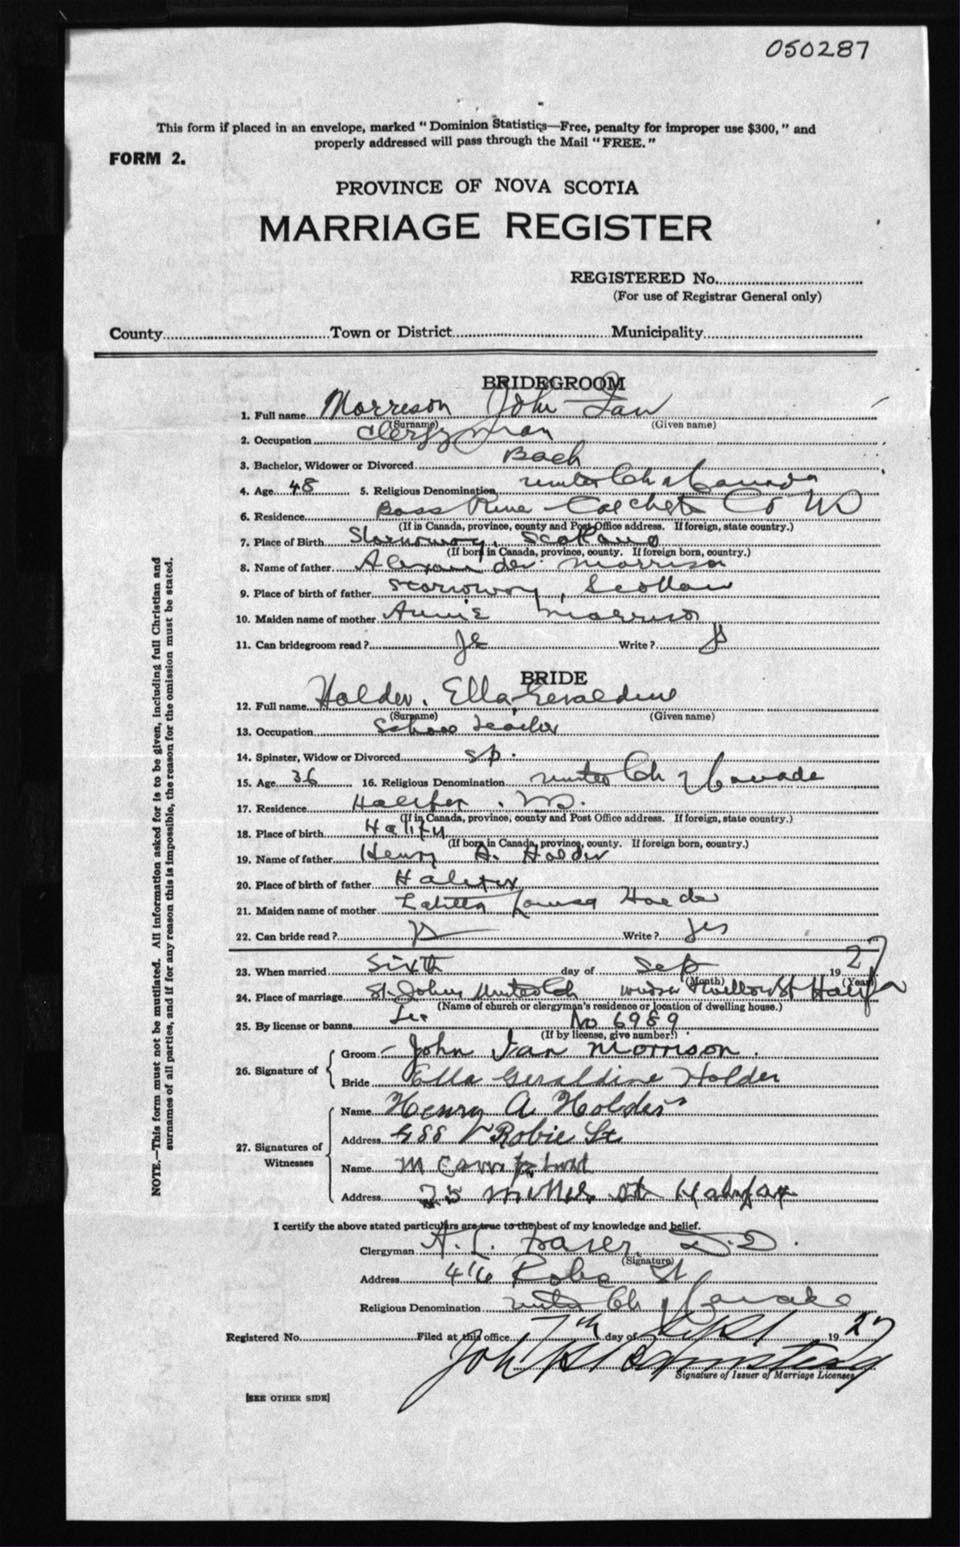 050287
This form if placed in an envelope, marked "Dominion Statistics—Free, penalty for improper use $300," and
properly addressed will pass through the Mail "FREE."
FORM 2.
PROVINCE OF NOVA SCOTIA
MARRIAGE REGISTER
REGISTERED No.
(For use of Registrar General only)
County Town or District Municipality
BRIDEGROOM
1. Full name Morrison John Ian
(Surname) (Given name)
2. Occupation Clergyman
3. Bachelor, Widower or Divorced Bach
4. Age 48 5. Religious Denomination United Ch Canada
6. Residence Bass River Colchester Co NS
(If in Canada, province, county and Post Office address. If foreign, state country.)
7. Place of Birth Stornoway, Scotland
(If born in Canada, province, county. If foreign born, country.)
8. Name of father Alexander Morrison
9. Place of birth of father Stornoway, Scotland
10. Maiden name of mother Annie Morrison
11. Can bridegroom read? Write?
BRIDE
12. Full name Holder, Ella Geraldine
(Surname) (Given name)
13. Occupation School Teacher
14. Spinster, Widow or Divorced Sp.
15. Age 36 16. Religious Denomination United Ch Canada
17. Residence Halifax, N.S.
(If in Canada, province, county and Post Office address. If foreign, state country.)
18. Place of birth Halifax
(If born in Canada, province, county. If foreign born, country.)
19. Name of father Henry A. Holder
20. Place of birth of father Halifax
21. Maiden name of mother Louisa
22. Can bride read? Write? Yes
23. When married Sixth day of Sep 1927
(Month) (Year)
24. Place of marriage St. Johns United Ch Windsor & Willow St Halifax
(Name of church or clergyman's residence or location of dwelling house.)
25. By license or banns Lic No 6989
(If by license, give number.)
26. Signature of
Groom John Ian Morrison.
Bride Ella Geraldine Holder
27. Signatures of Witnesses
Name Henry A Holder
Address Robie St
Name M Campbell
Address 25 St Halifax
I certify the above stated particulars are true to the best of my knowledge and belief.
Clergyman Fraser, D.D.
(Signature)
Address 416 Robie St
Religious Denomination United Ch Canada
Registered No. Filed at this office 7th day of Sept 1927
Signature of Issuer of Marriage Licenses
[SEE OTHER SIDE]
NOTE.—This form must not be mutilated. All information asked for is to be given, including full Christian and
surnames of all parties, and if for any reason this is impossible, the reason for the omission must be stated.